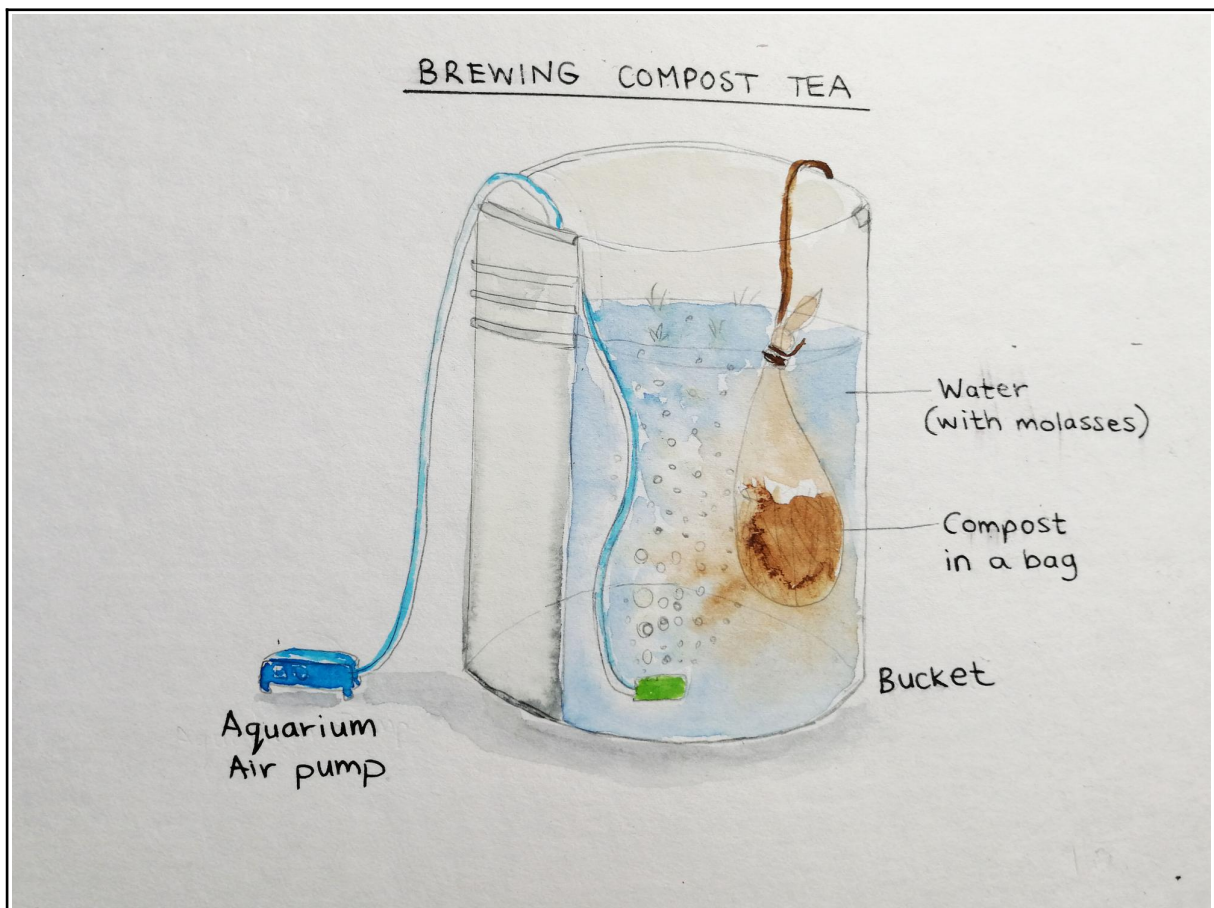 BREWING COMPOST TEA
Water
(with molasses)
Compost
in a bag
Bucket
Aquarium
Air pump